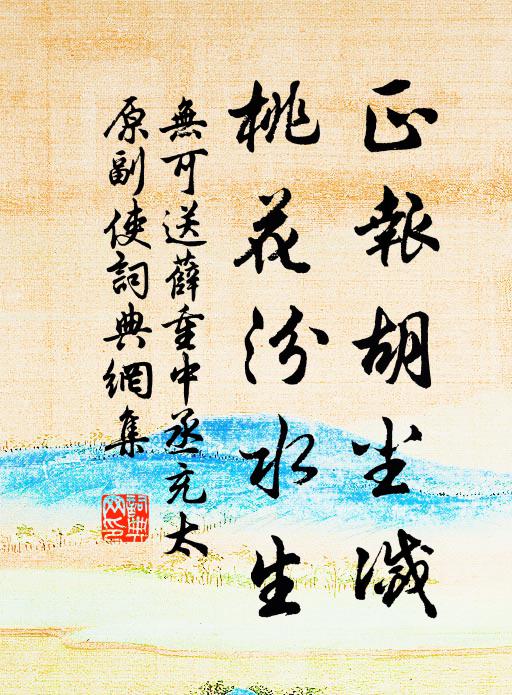 正報胡尘滅
桃花汾水生
無可送薛重中丞充太
原副使詞典網集